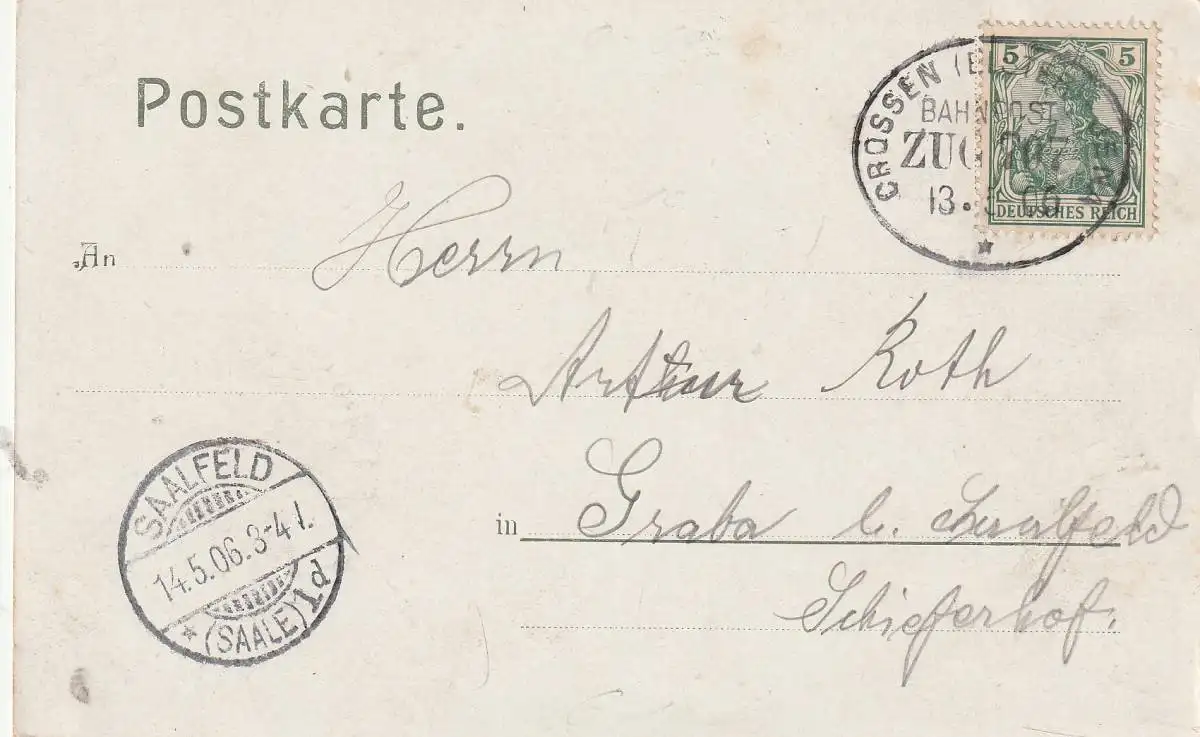 Postkarte.
5 5
CROSSEN
BAHNPOST
ZUG 207
13. 5. 06
DEUTSCHES REICH
An Herrn
Arthur Roth
in Graba b. Saalfeld
Schieferhof.
SAALFELD
14.5.06.3-4 N.
(SAALE) 1d